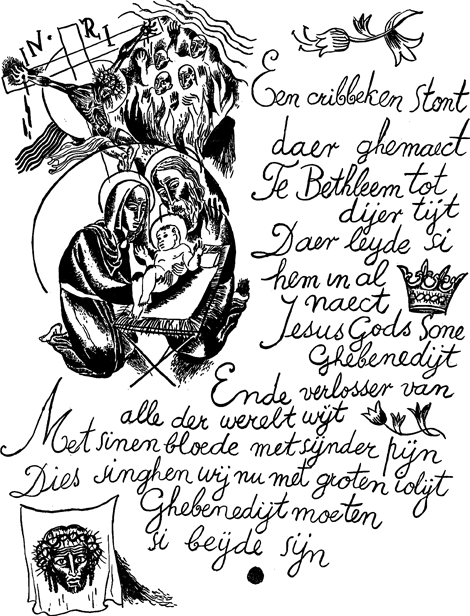 IN·RI
Een cribbeken stont
daer ghemaect
Te Bethleem tot
dijer tijt
Daer leyde si
hem in al
naect
Jesus Gods Sone
Ghebenedijt
Ende verlosser van
alle der werelt wijt
Met sinen bloede met sijnder pijn
Dies singhen wij nu met groten iolijt
Ghebenedijt moeten
si beijde sijn